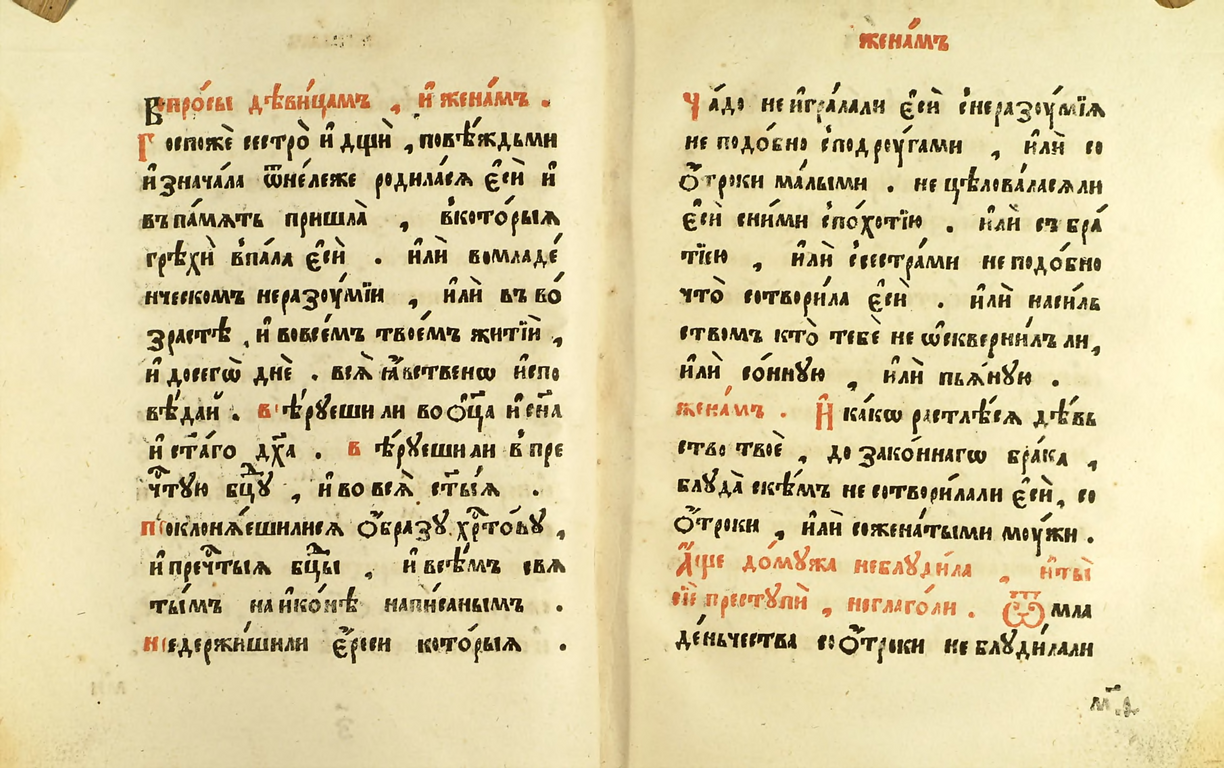 Вопро́сы дѣви́цамъ , и҆ жена́мъ .
Госпожѐ сестро̀ и҆ дщи̑ , повѣ́ждьми
и҆знача́ла ѿне́леже роди́лася є҆сѝ и҆
въпа́мять пришла̀ , вкото́рыя
грѣхѝ впа́ла є҆сѝ . и҆лѝ вомладе́
ническомъ неразоу́мїи , и҆лѝ въ во́
зрастѣ , и҆ вовсе́мъ твое́мъ житїѝ ,
и҆ досегѡ̀ днѐ . вся̀ ꙗ҆́вственѡ и҆спо
вѣ́дай . вѣ́руеши ли во ѻ҆ц҃а и҆ сн҃а
и҆ ст҃а́го дх҃а . вѣ́руеши ли в пре
чⷭ҇тую бцⷣу , и҆ во вся̀ ст҃ы́я .
поклоня́ешилися ѻ҆́бразу хрⷭ҇то́ву ,
и҆ пречⷭ҇тыя бцⷣы , и҆ всѣ́мъ свя
ты́мъ на и҆ко́нѣ напи́санымъ .
недержи́шили є҆́реси кото́рыя .
жена́мъ
Ча́до не и҆гра́лали є҆сѝ с неразоу́мїя
не подо́бно с подроу́гами , и҆лѝ со
ѻ҆́троки ма́лыми . не цѣлова́лася ли
є҆сѝ сни́ми спо́хотїю . и҆лѝ съ бра́
тїею , и҆лѝ с сестра́ми не подо́бно
что̀ сотвори́ла є҆сѝ . и҆лѝ насиль
ствомъ кто̀ тебѐ не ѡ҆скверни́лъ ли ,
и҆лѝ со́нную , и҆лѝ пья́ную .
жена́мъ . И҆ ка́кѡ растлѣ́ся дѣ́вь
ство твоѐ , до зако́ннагѡ бра́ка ,
блуда̀ скѣ́мъ не сотвори́лали є҆сѝ , со
ѻ҆́троки , и҆лѝ сожена́тыми моу́жи .
А҆́ще до́мужа неблуди́ла , и҆ ты̀
сїѐ преступѝ , неглаго́ли . Ѿ мла
де́ньчества со ѻ҆́троки не блуди́лали